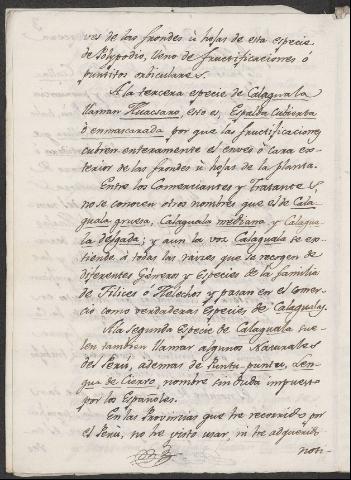 ves de las frondes ú hojas de esta especie
de Polypodio, lleno de fructificaciones ó
puntitos orbiculares.
A la tercera especie de Calaguala
llaman Huacsaro, esto es, Espalda cubierta
ó enmascarada por que las fructificaciones
cubren enteramente el enves ó cara ex-
terior de las frondes ú hojas de la planta.
Entre los Comerciantes y Tratantes
no se conocen otros nombres que es de Cala
guala gruesa, Calaguala mediana y Calagua
la delgada; y aun la voz Calaguala se ex-
tiende á todas las raices que se recogen de
diferentes Géneros y Especies de la familia
de Filices ó Helechos y pasan en el comer-
cio como verdaderas Especies de Calaguala,
A la Segunda Especie de Calaguala sue-
len tambien llamar algunos Naturales
del Perú, ademas de Puntu-puntu, Len-
gua de Ciervo, nombre sin duda impuesto
por los Españoles.
En las Provincias que he recorrido por
el Perú, no he visto usar, ni he adquirido
noti-